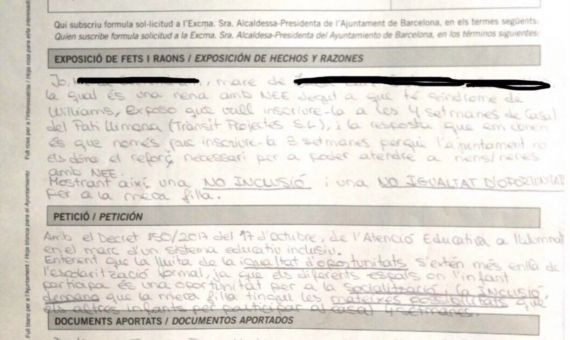 Qui subscriu formula sol·licitud a l'Excma. Sra. Alcaldessa-Presidenta de l'Ajuntament de Barcelona, en els termes següents:
Quien suscribe formula solicitud a la Excma. Sra. Alcaldesa-Presidenta del Ayuntamiento de Barcelona, en los términos siguientes:
EXPOSICIÓ DE FETS I RAONS / EXPOSICIÓN DE HECHOS Y RAZONES
Jo, , mare de
la qual és una nena amb NEE degut a que té síndrome de
Williams, Exposo que vull inscriure-la a les 4 setmanes de Casal
del Pati Llimona (Trànsit Projectes S.L), i la resposta que em donen
és que només puc inscriure-la 3 setmanes perquè l'ajuntament no
els dóna el reforç necessari per a poder atendre a nens/nenes
amb NEE.
Mostrant així una NO INCLUSIÓ i una NO IGUALTAT D'OPORTUNITAT
per a la meva filla.
PETICIÓ / PETICIÓN
Amb el Decret 150/2017 del 17 d'octubre, de l'Atenció Educativa a l'alumnat
en el marc d'un sistema educatiu inclusiu.
Entenent que la lluita de la igualtat d'oportunitats s'extén més enllà de
l'escolarització formal, ja que els diferents espais on l'infant
participa és una oportunitat per a la socialització i la inclusió
demano que la meva filla tingui les mateixes possibilitats que
els altres infants per participar al casal 4 setmanes.
DOCUMENTS APORTATS / DOCUMENTOS APORTADOS